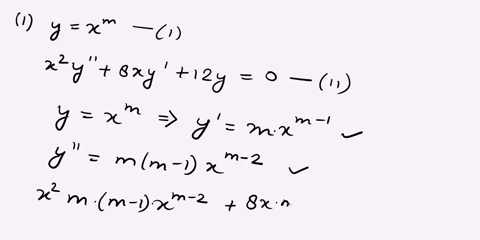 (1) y = x^m — (1)
x²y'' + 8xy' + 12y = 0 — (11)
y = x^m ⇒ y' = m·x^{m-1} ✓
y'' = m(m-1) x^{m-2} ✓
x² m·(m-1)·x^{m-2} + 8x·